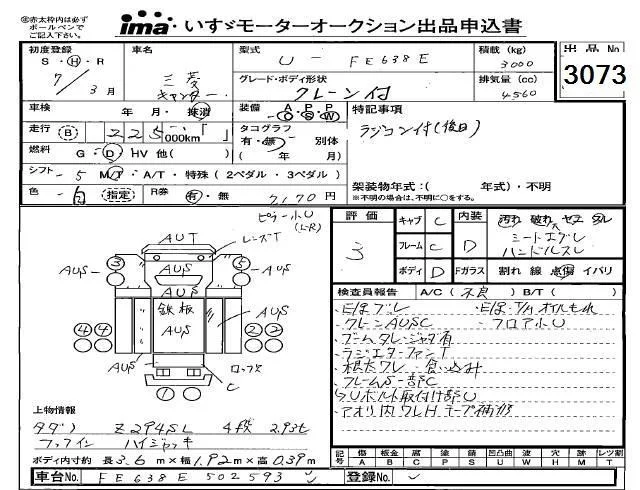 ㊟赤太枠内は必ず
ボールペンで
ご記入下さい。
ima いすゞモーターオークション出品申込書
初度登録 S・H・R 7/3月
車名 三菱 キャンター
型式 U-FE638E
積載(kg) 3000
出品No 3073
グレード・ボディ形状 クレーン付
排気量(cc) 4560
車検 年・月・抹消
装備 A・P・P C S W
特記事項
走行 B 225 000km「 」
タコグラフ 有・無 別体 ( 年 月)
ラジコン付(後日)
燃料 G・D・HV 他( )
シフト -5 MT・A/T・特殊(2ペダル・3ペダル)
架装物年式:( 年式)・不明
※不明の場合は、不明に○をする。
色 -白 (指定) R券 有・無 7170円
評価 3
キャブ C 内装 D 汚れ 破れ ヤエ ダレ
フレーム C
シートエグレ
ハンドルスレ
ボディ D Fガラス 割れ 線 点傷 イバリ
ピラー小U
(L-R)
AUT
レンズT
3 AUS AUS AUS 5
鉄板
AUS AUS
4 4 2 2
AUS
1 C
検査員報告 A/C(不良)B/T( )
・E/gブレ
・E/g・T/Mオイルもれ
・クレーンAUSC
・フロア小U
・ブームタレ・ジャダ有
・ラジエターファンT
・根太ワレ・食い込み
・フレームS一部C
・Uボルト取付け部U
・アオリ内ワレHテープ補修
上物情報
タダノ Z294SL 4段 2.93t
フックイン ハイジャッキ
ボディ内寸約 長3.6 m×幅1.92m×高0.39m
記号 傷A 板金B 腐C 塗P 錆S 凹凸曲U 波W 穴H 跡M レツ割T
車台No. FE638E 502593
登録No.